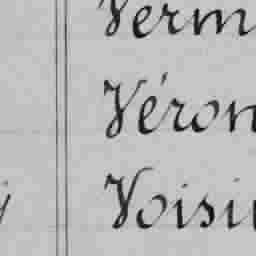 Verm
Véron
Voisi